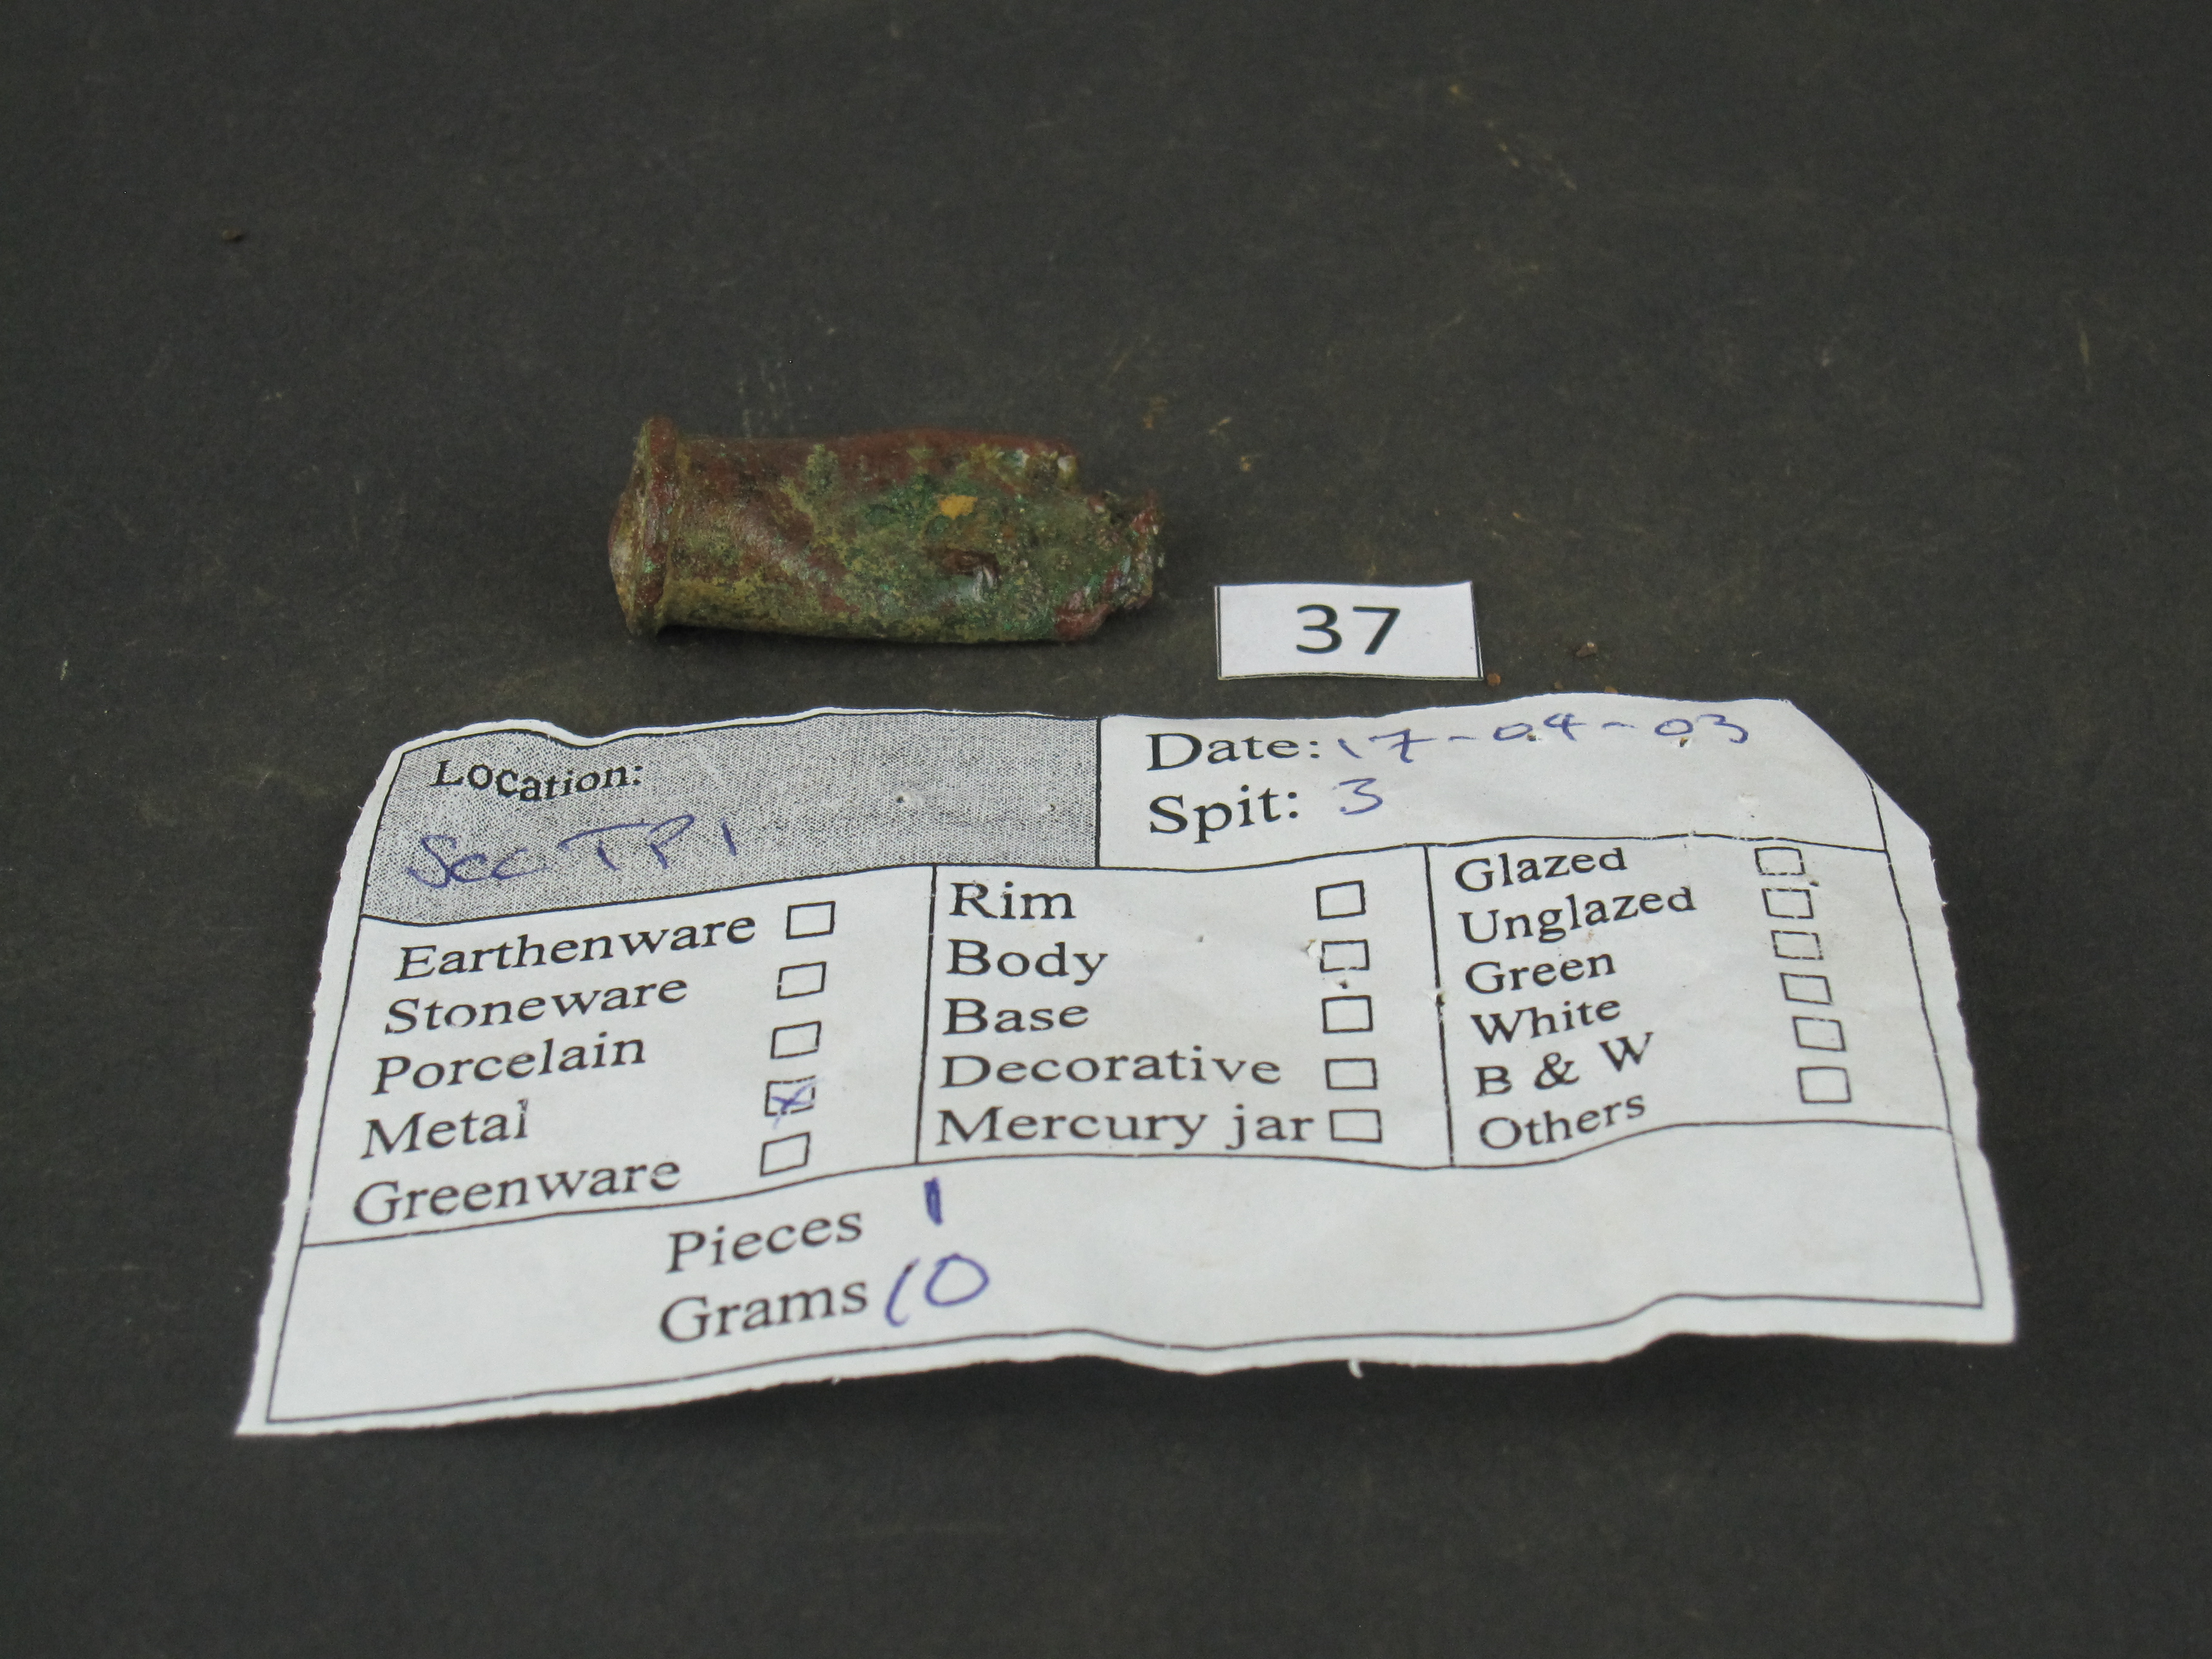 37
Location:
Scc TP1
Date: 17-04-03
Spit: 3
Earthenware
Stoneware
Porcelain
Metal
Greenware
Rim
Body
Base
Decorative
Mercury jar
Glazed
Unglazed
Green
White
B & W
Others
Pieces 1
Grams 10